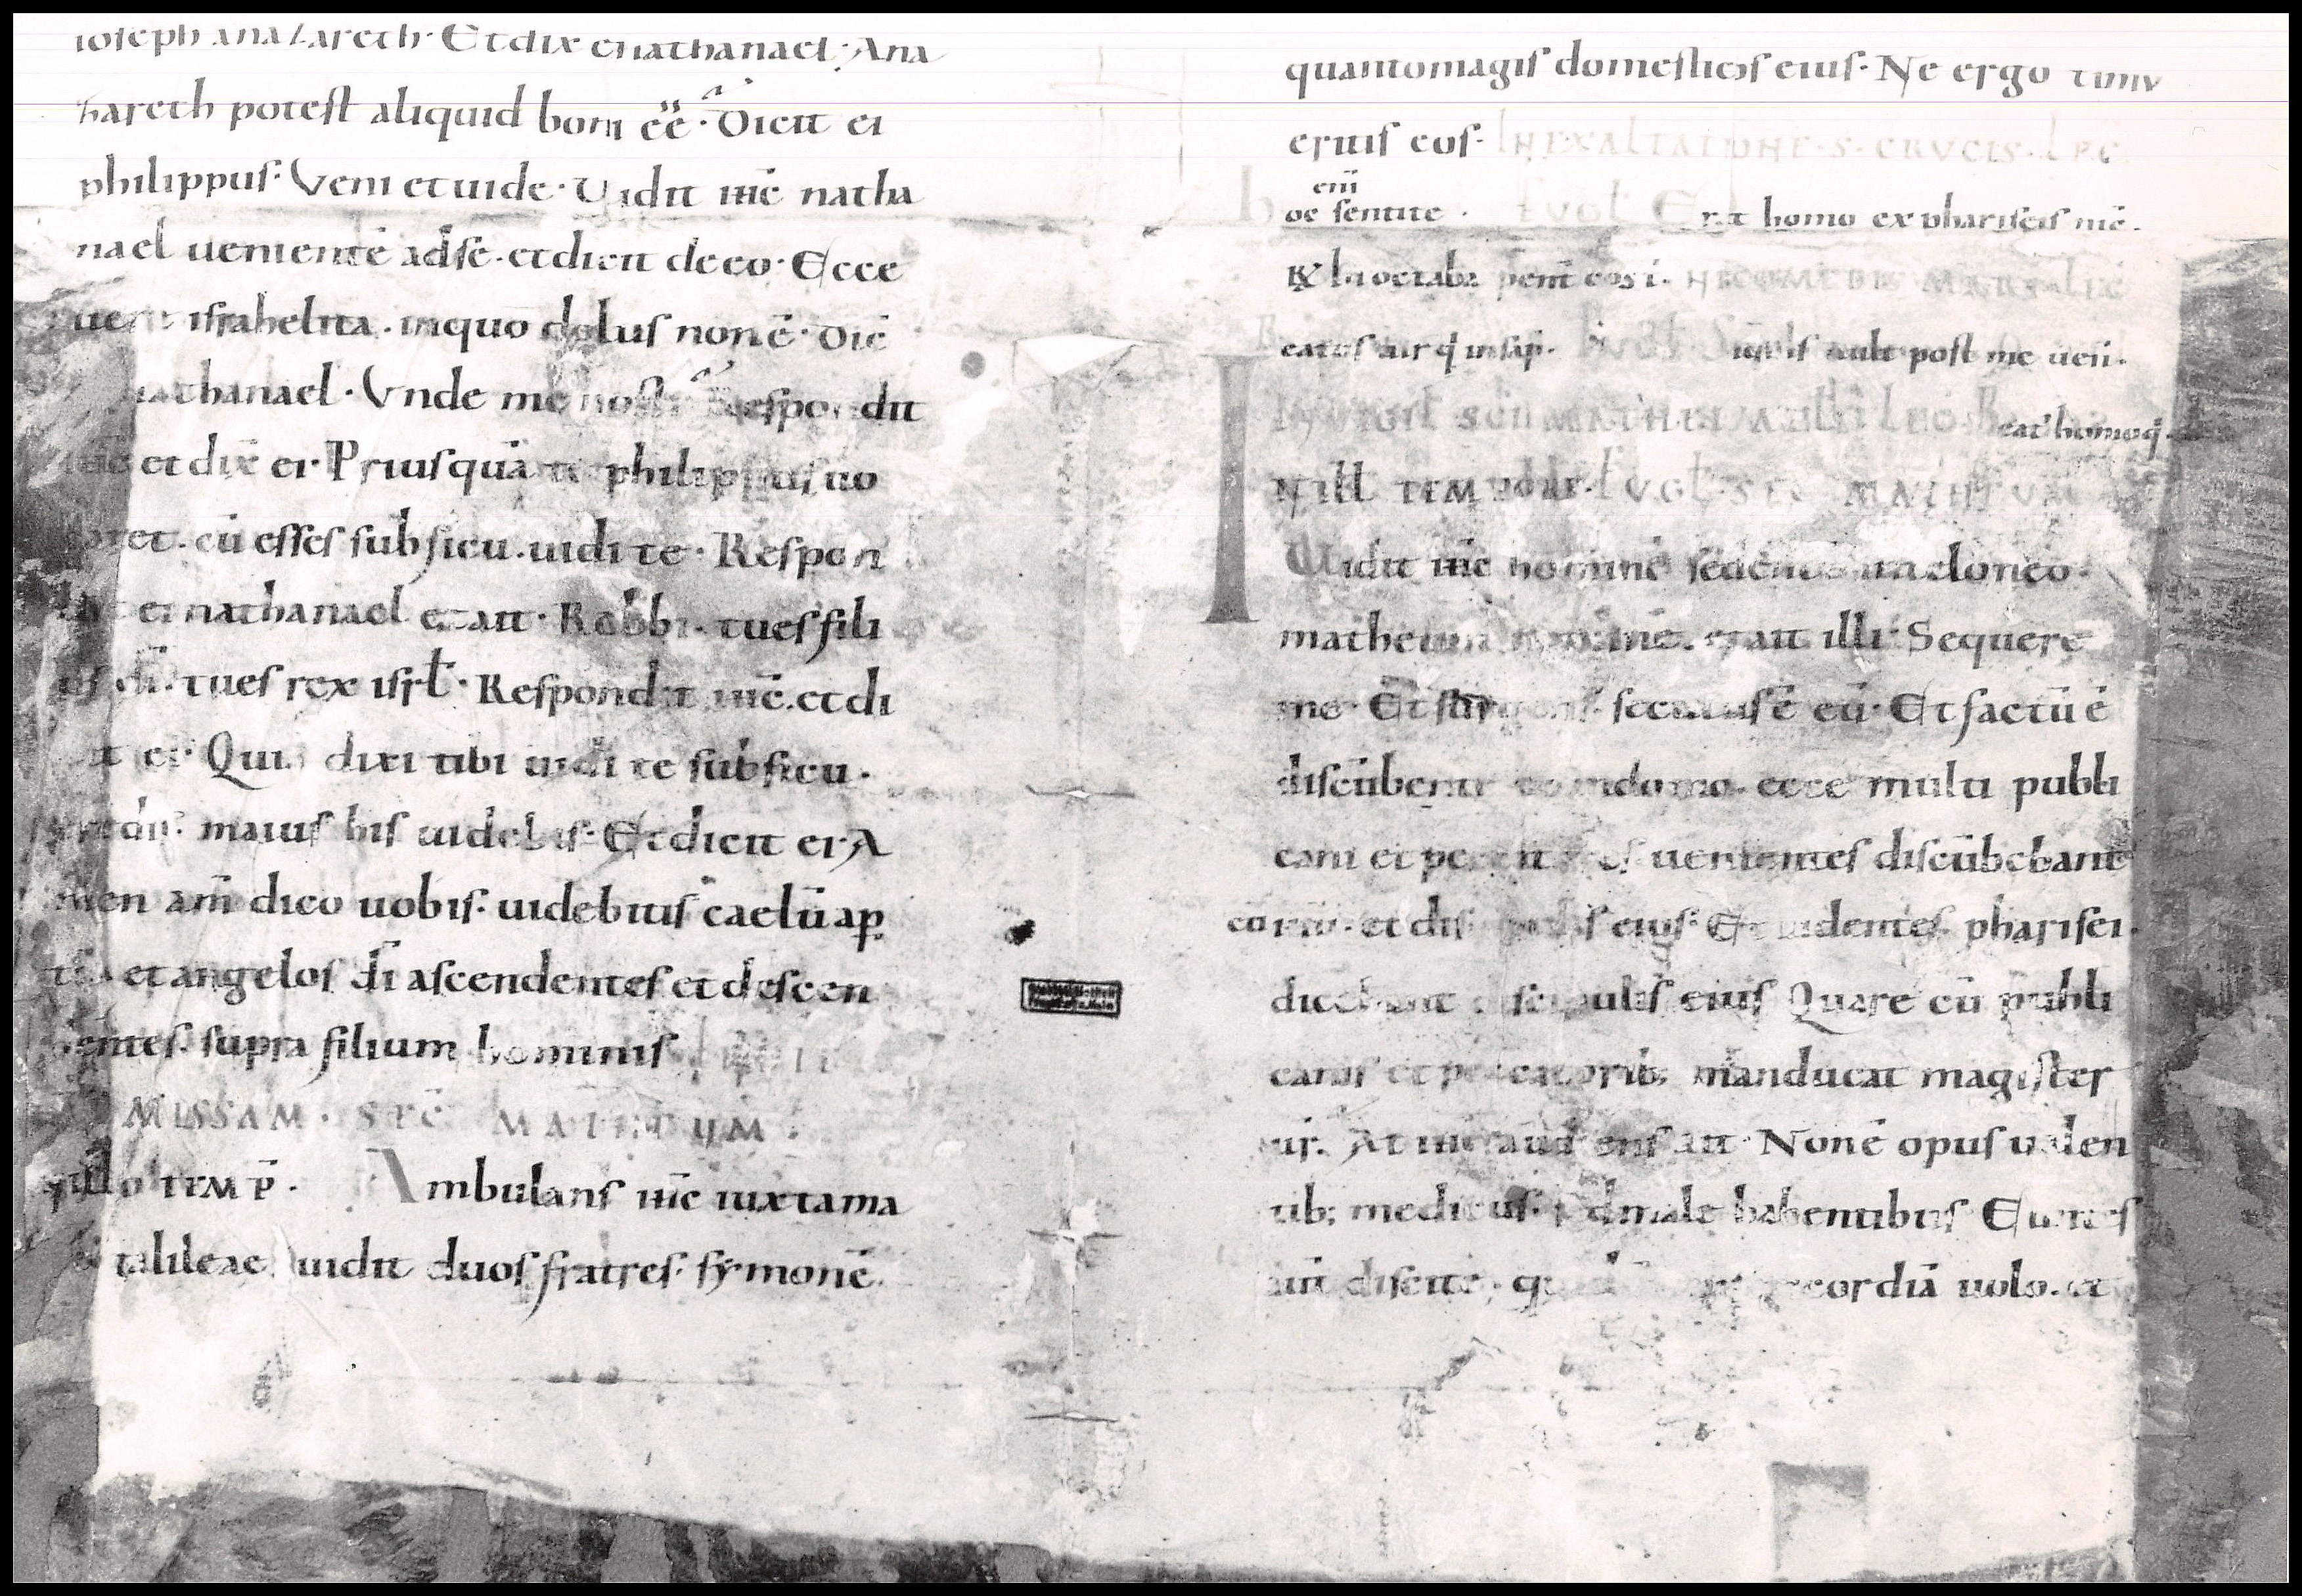 ioseph anazareth· Et dix ei nathanael· Ana
hareth potest aliquid boni eē· Dicit ei
philippus· Veni et uide· Vidit ihc̄ natha
nael uenientē ad se· et dicit de eo· Ecce
uere israhelita· in quo dolus non ē· Dic̄
nathanael· Vnde me nosti Respondit
ihc̄ et dix̄ ei· Priusquā te philippus uo
caret· cū esses sub ficu· uidi te· Respon
dit ei nathanael et ait· Rabbi· tu es fili
us dī· tu es rex isrł· Respondit ihc̄· et di
xit ei· Quia dixi tibi uidi te sub ficu·
credis· maius his uidebis· Et dicit ei· A
men am̄ dico uobis· uidebitis caelū ap
tū· et angelos dī ascendentes et descen
dentes· supra filium hominis
MISSAM· SEC̄ MATHEUM·
In illo TEMP̄· Ambulans ihc̄ iuxta ma
re galileae uidit duos fratres· symonē·
quantomagis domesticos eius· Ne ergo timu
eritis eos· IN EXALTATIONE· S· CRVCIS· LEC
enī
oc sentite· EVGL Erat homo ex phariseis nic̄·
NICOMEDIS MARTYRIS
Beatus uir q̇ in sap̄· post me ueni·
IN VIGIL SCI MATHEI
Beat' homo q̇
IN ILL TEMPORE· EVGL· SEC MATHEVM
Vidit ihc̄ hominē sedentē in teloneo·
matheum nomine· et ait illi· Sequere
me· Et surgens· secutus ē eū· Et factū ē
discūbente eo in domo· ecce multi publi
cani et peccatores uenientes discūbebant
cū ihū· et discipulis eius· Et uidentes· pharisei·
dicebant discipulis eius Quare cū publi
canis et peccatorib; manducat magister
ur̄· At ihc̄ audiens ait· Non ē opus ualen
tib; medicus· sed male habentibus Euntes
aut̄ discite· quid ē misericordiā uolo· et